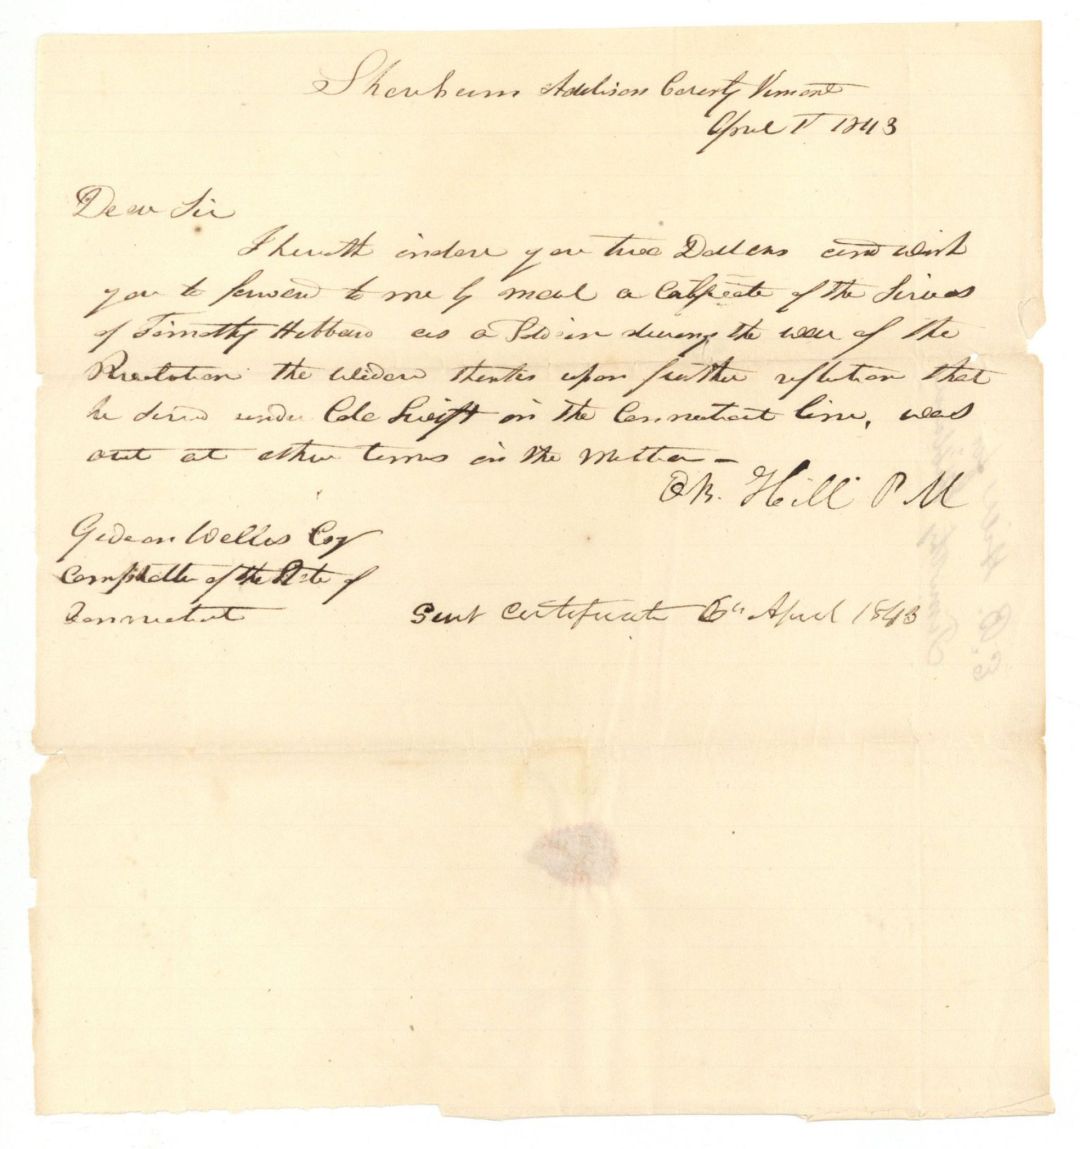 Shoreham Addison County Vermont
April 1st 1843
Dear Sir
I herewith inclose you two Dollars and wish
you to forward to me by mail a Certificate of the Services
of Timothy Hibbard as a Soldier during the war of the
Revolution the widow thinks upon further reflection that
he served under Colo Swift in the Connecticut line, was
out at other times in the
Hill P M
Gideon Welles Esq
Comptroller of the State of
Connecticut
Sent Certificate 6th April 1843